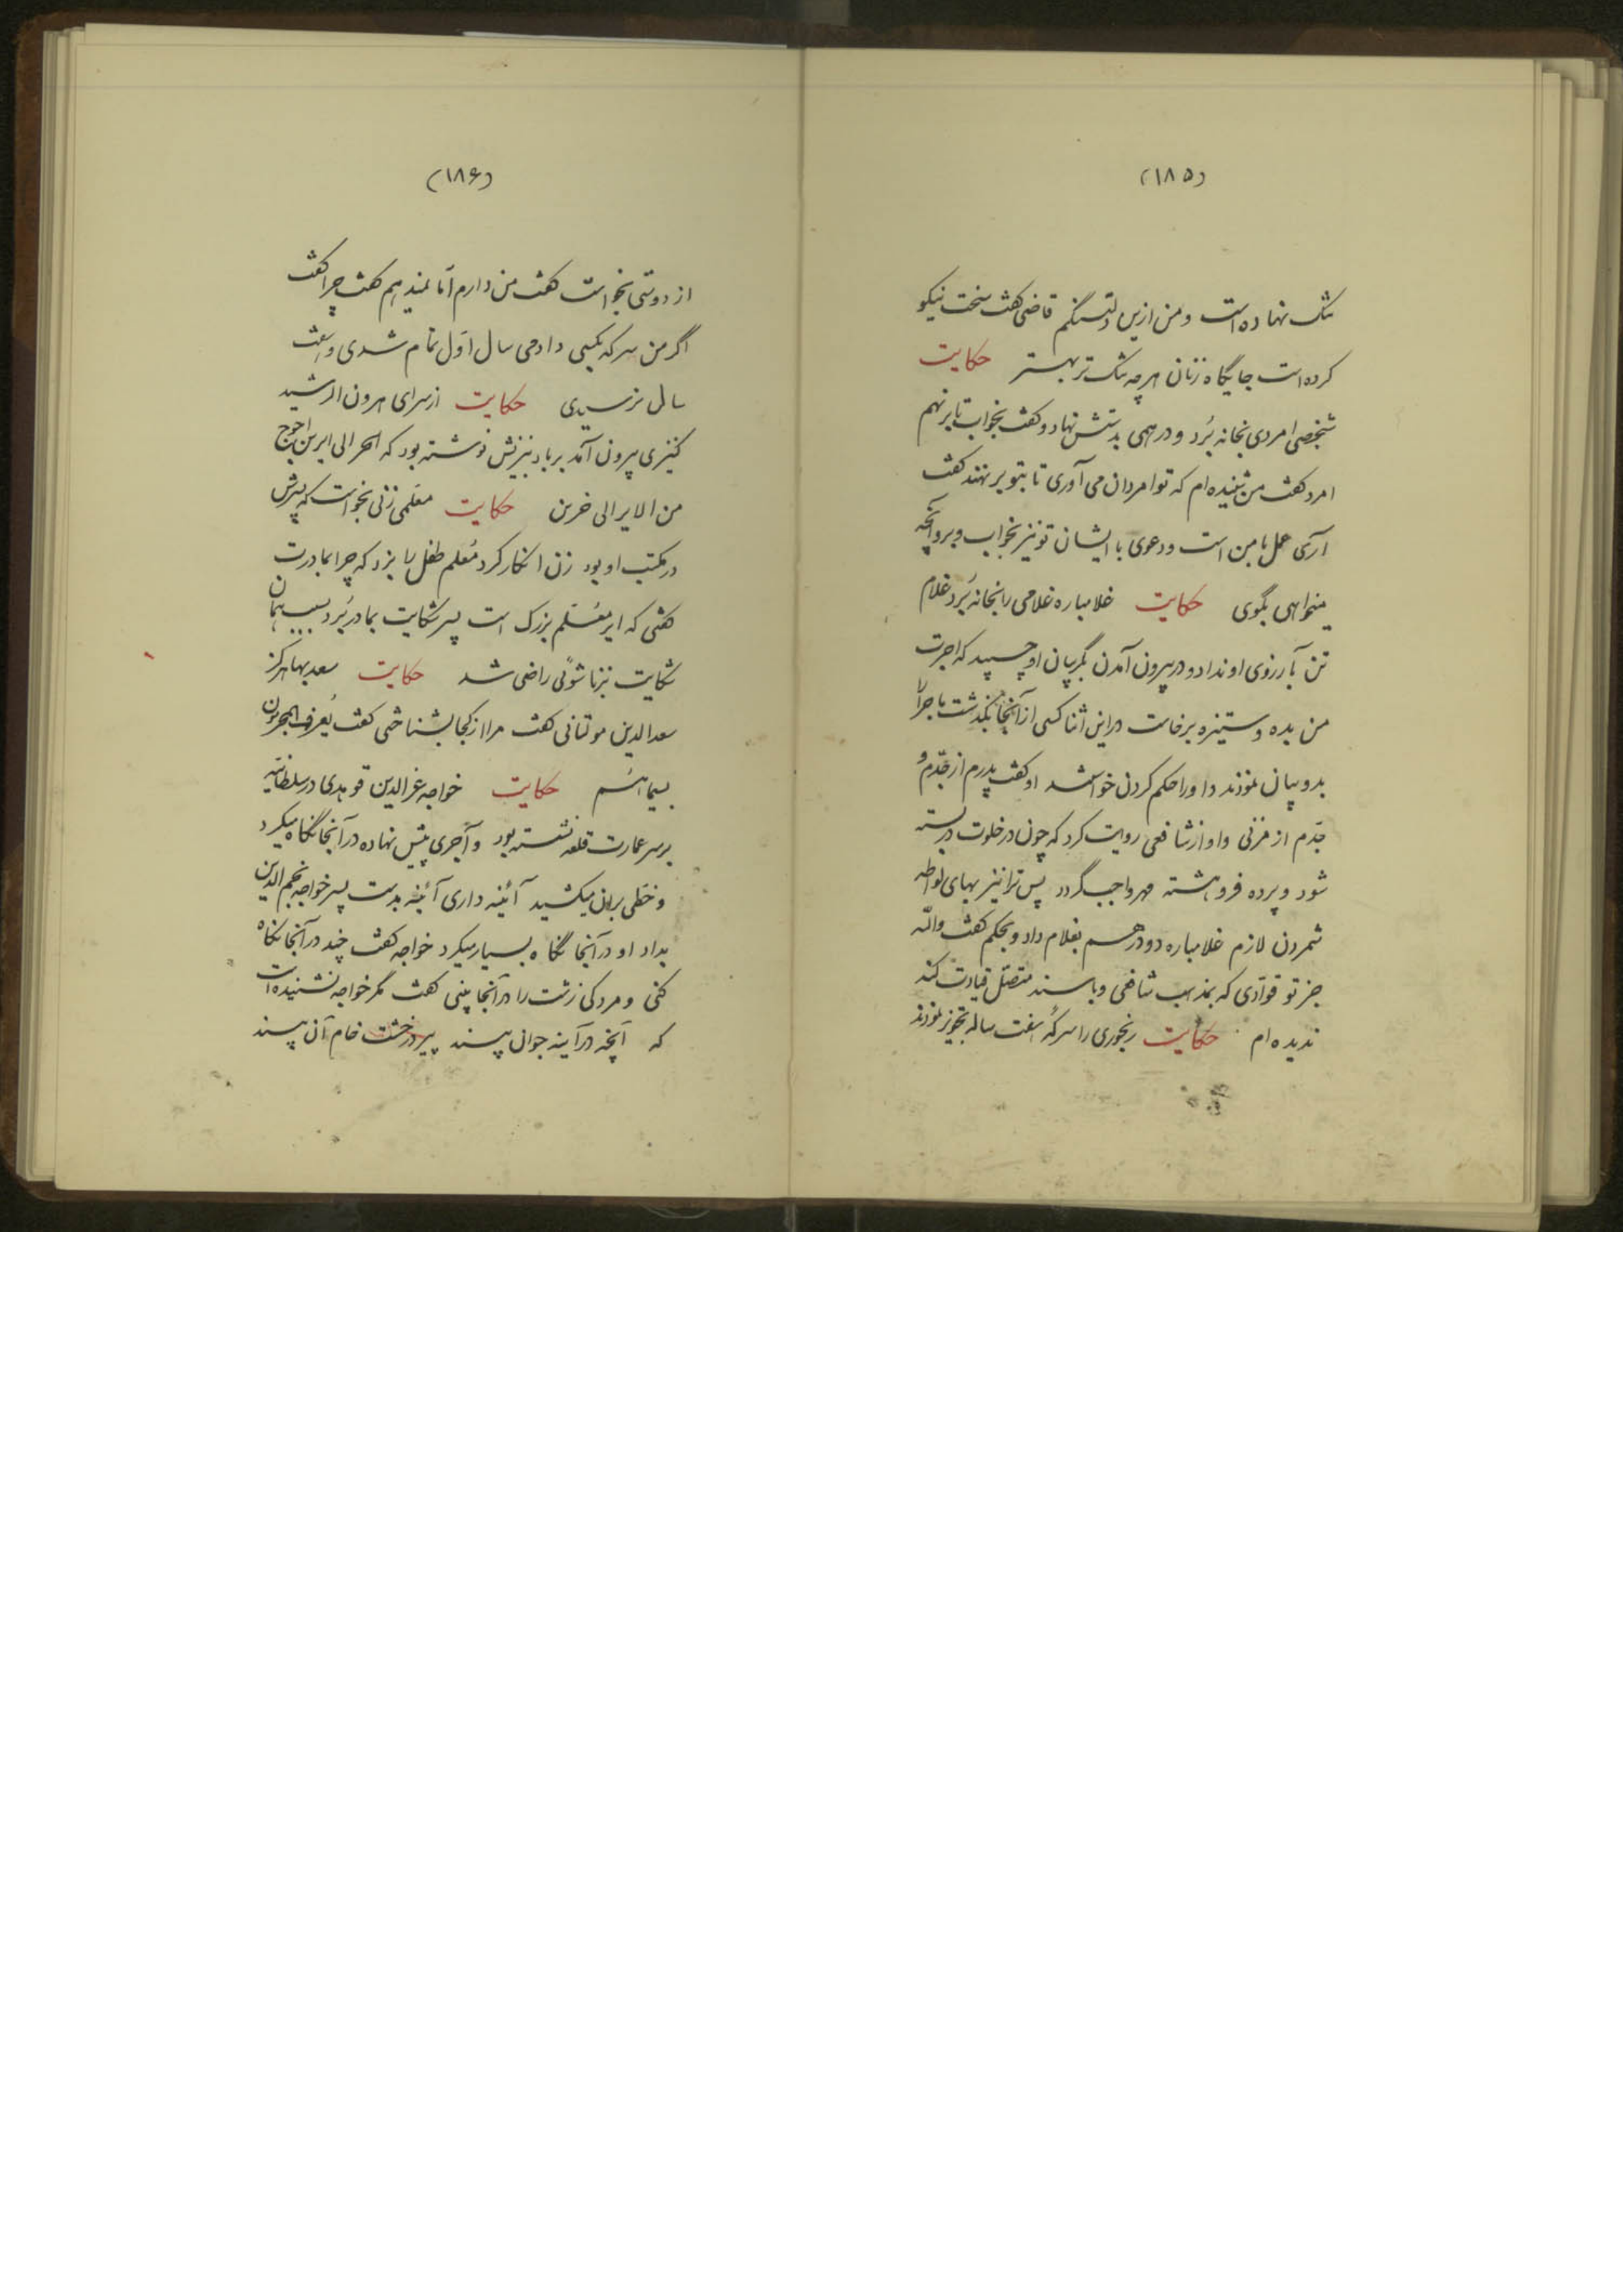 (۱۸۵)
تنگ نهاده است و من ازین دلتنگم قاضی گفت سخت نیکو
کرده است جایگاه زنان هرچه تنگ تر بهتر حکایت
شخصی امردی بخانه بُرد و درهمی بدستش نهاد و گفت بخواب تا برنهم
امرد گفت من شنیده‌ام که تو امردان می آوری تا بتو برنهند گفت
آری عمل با من است و دعوی با ایشان تو نیز بخواب و برو آنچه
میخواهی بگوی حکایت غلامباره غلامی را بخانه بُرد غلام
تن بآرزوی او نداد و در بیرون آمدن بگریبان او چسبید که اجرت
من بده و ستیزه برخاست در این اثنا کسی از آنجا بگذشت ماجرا را
بدو بیان نمودند و او را حکم کردن خواستند او گفت پدرم از جدّم و
جدّم از مزنی و او از شافعی روایت کرد که چون در خلوت در بسته
شود و پرده فروهشته مهر واجب گردد پس ترا نیز بهای لواطه
شمردن لازم غلامباره دو درهم بغلام داد و بحکم گفت واللّه
جز تو قوّادی که بمذهب شافعی و باسند متصّل قیادت کند
ندیده ام حکایت رنجوری را سرکهٔ هفت ساله تجویز نمودند
(۱۸۶)
از دوستی بخواست گفت من دارم امّا نمیدهم گفت چرا گفت
اگر من سرکه بکسی دادمی سال اوّل تمام شدی و بهفت
سال نرسیدی حکایت از سرای هرون الرشید
کنیزی بیرون آمد بر بادبیزنش نوشته بود که الحر الی ایرین احوج
من الایر الی حرین حکایت معلمی زنی بخواست که پسرش
در مکتب او بود زن انکار کرد مُعلم طفل را بزد که چرا بمادرت
گفتی که ایر مُعَلّم بزرگ است پسر شکایت بمادر بُرد بسبب همان
شکایت بزناشوئی راضی شد حکایت سعد بهاء هرگز
سعدالدین مولتانی گفت مرا از کجا بشناختی گفت یُعرف المجرمون
بسیماهُم حکایت خواجه عزالدین قوهدی در سلطانیّه
بر سر عمارت قلعه نشسته بود و آجری پیش نهاده در آنجا نگاه میکرد
و خطّی بران میکشید آئینه داری آئینه بدست پسر خواجه نجم الدین
بداد او در آنجا نگاه بسیار میکرد خواجه گفت چند در آنجا نگاه
کنی و مردکی زشت را در آنجا بینی گفت مگر خواجه نشنیده است
که آنچه در آینه جوان بیند پیر در خشت خام آن بیند